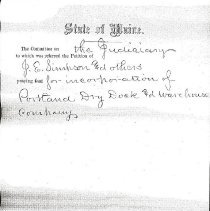 State of Maine.
The Committee on the Judiciary
to which was referred the Petition of
J. E. Simpson and others
praying that for incorporation of
Portland Dry Dock and Warehouse
Company,